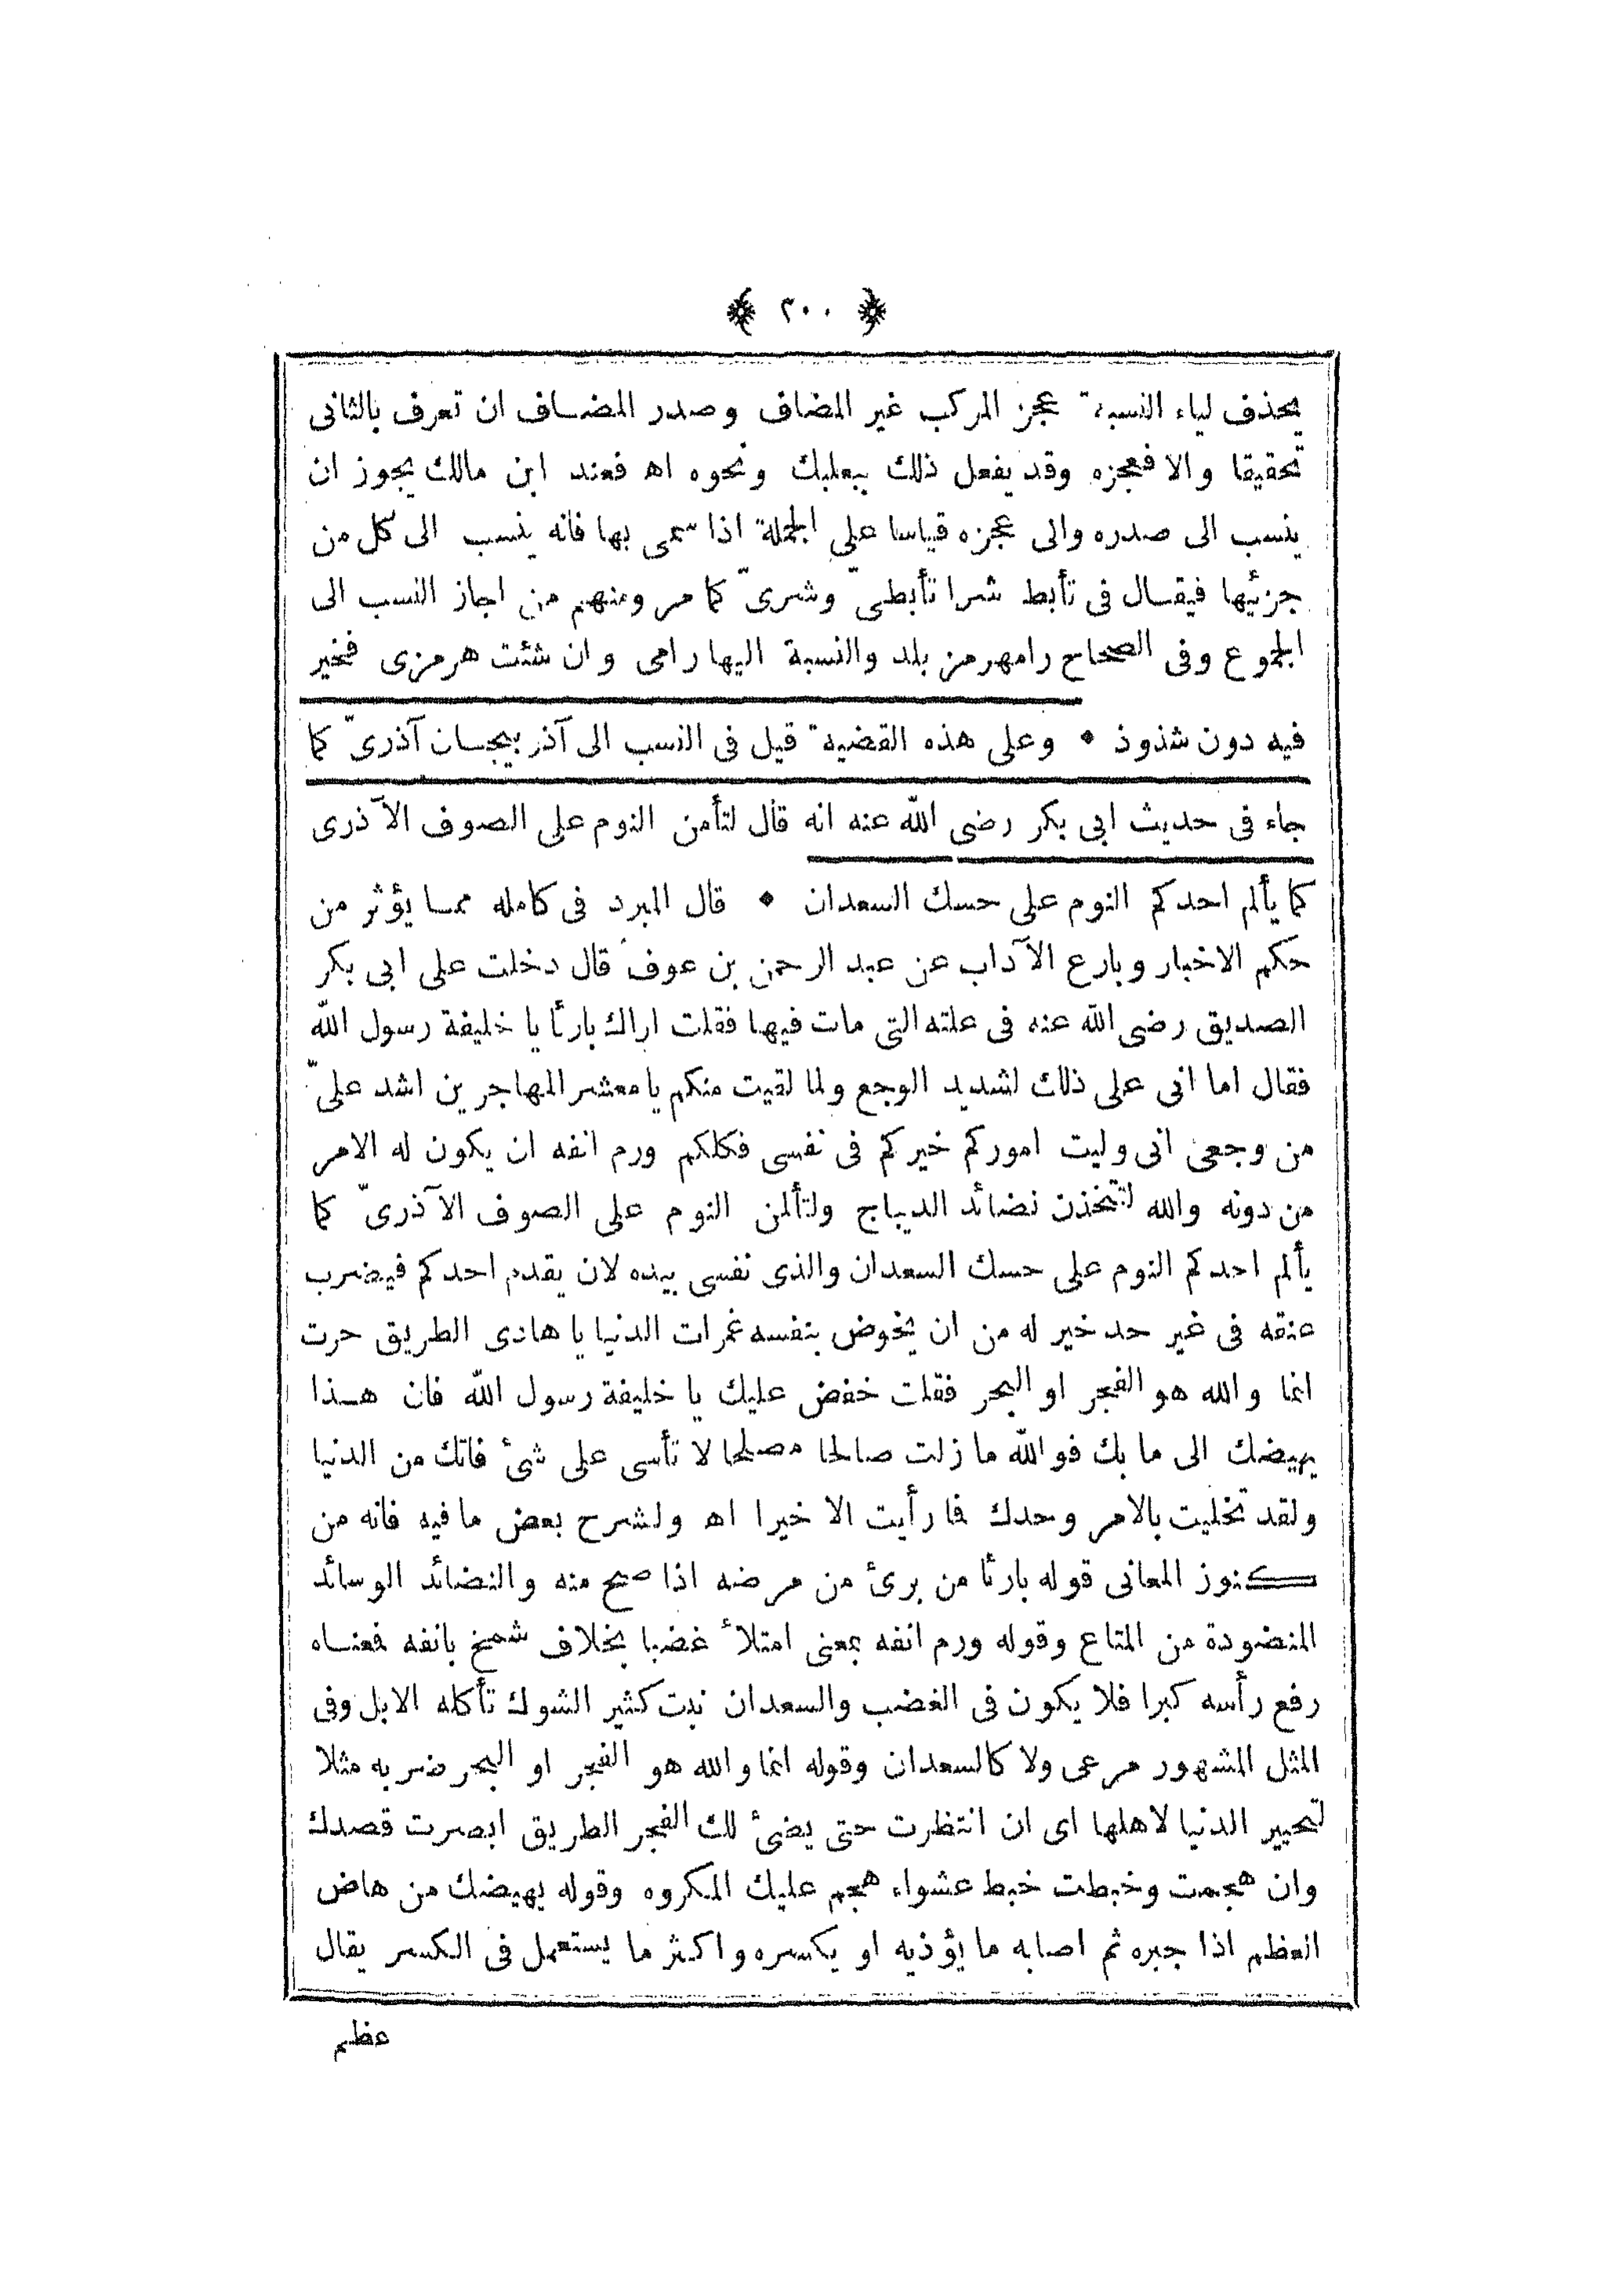 ٢٠٠
يحذف لياء النسبة عجز المركب غير المضاف وصدر المضاف ان تعرف بالثانى
تحقيقا والا فعجزه وقد يفعل ذلك ببعلبك ونحوه اه فعند ابن مالك يجوز ان
ينسب الى صدره والى عجزه قياسا على الجملة اذا سمى بها فانه ينسب الى كل من
جزئيها فيقال فى تأبط شرا تأبطىّ وشرىّ كما مر ومنهم من اجاز النسب الى
المجموع وفى الصحاح رامهرمز بلد والنسبة اليها رامى وان شئت هرمزى فخير
فيه دون شذوذ * وعلى هذه القضية قيل فى النسب الى آذربيجان آذرىّ كما
جاء فى حديث ابى بكر رضى الله عنه انه قال لتأمن النوم على الصوف الآذرى
كما يألم احدكم النوم على حسك السعدان * قال المبرد فى كامله مما يؤثر من
حكم الاخبار وبارع الآداب عن عبد الرحمن بن عوف قال دخلت على ابى بكر
الصديق رضى الله عنه فى علته التى مات فيها فقلت اراك بارئا يا خليفة رسول الله
فقال اما انى على ذلك لشديد الوجع ولما لقيت منكم يا معشر المهاجرين اشد علىّ
من وجعى انى وليت اموركم خيركم فى نفسى فكلكم ورم انفه ان يكون له الامر
من دونه والله لتتخذن نضائد الديباج ولتألمن النوم على الصوف الآذرىّ كما
يألم احدكم النوم على حسك السعدان والذى نفسى بيده لان يقدم احدكم فيضرب
عنقه فى غير حد خير له من ان يخوض بنفسه غمرات الدنيا يا هادى الطريق حرت
انما والله هو الفجر او البحر فقلت خفض عليك يا خليفة رسول الله فان هذا
يهيضك الى ما بك فو الله ما زلت صالحا مصلحا لا تأسى على شئ فاتك من الدنيا
ولقد تخليت بالامر وحدك فما رأيت الا خيرا اه ولشرح بعض ما فيه فانه من
كنوز المعانى قوله بارئا من برئ من مرضه اذا صح منه والنضائد الوسائد
المنضودة من المتاع وقوله ورم انفه بمعنى امتلأ غضبا بخلاف شمخ بانفه فمعناه
رفع رأسه كبرا فلا يكون فى الغضب والسعدان نبت كثير الشوك تأكله الابل وفى
المثل المشهور مرعى ولا كالسعدان وقوله انما والله هو الفجر او البحر ضربه مثلا
لتحيير الدنيا لاهلها اى ان انتظرت حتى يضئ لك الفجر الطريق ابصرت قصدك
وان هجمت وخبطت خبط عشواء هجم عليك المكروه وقوله يهيضك من هاض
العظم اذا جبره ثم اصابه ما يؤذيه او يكسره واكثر ما يستعمل فى الكسر يقال
عظم